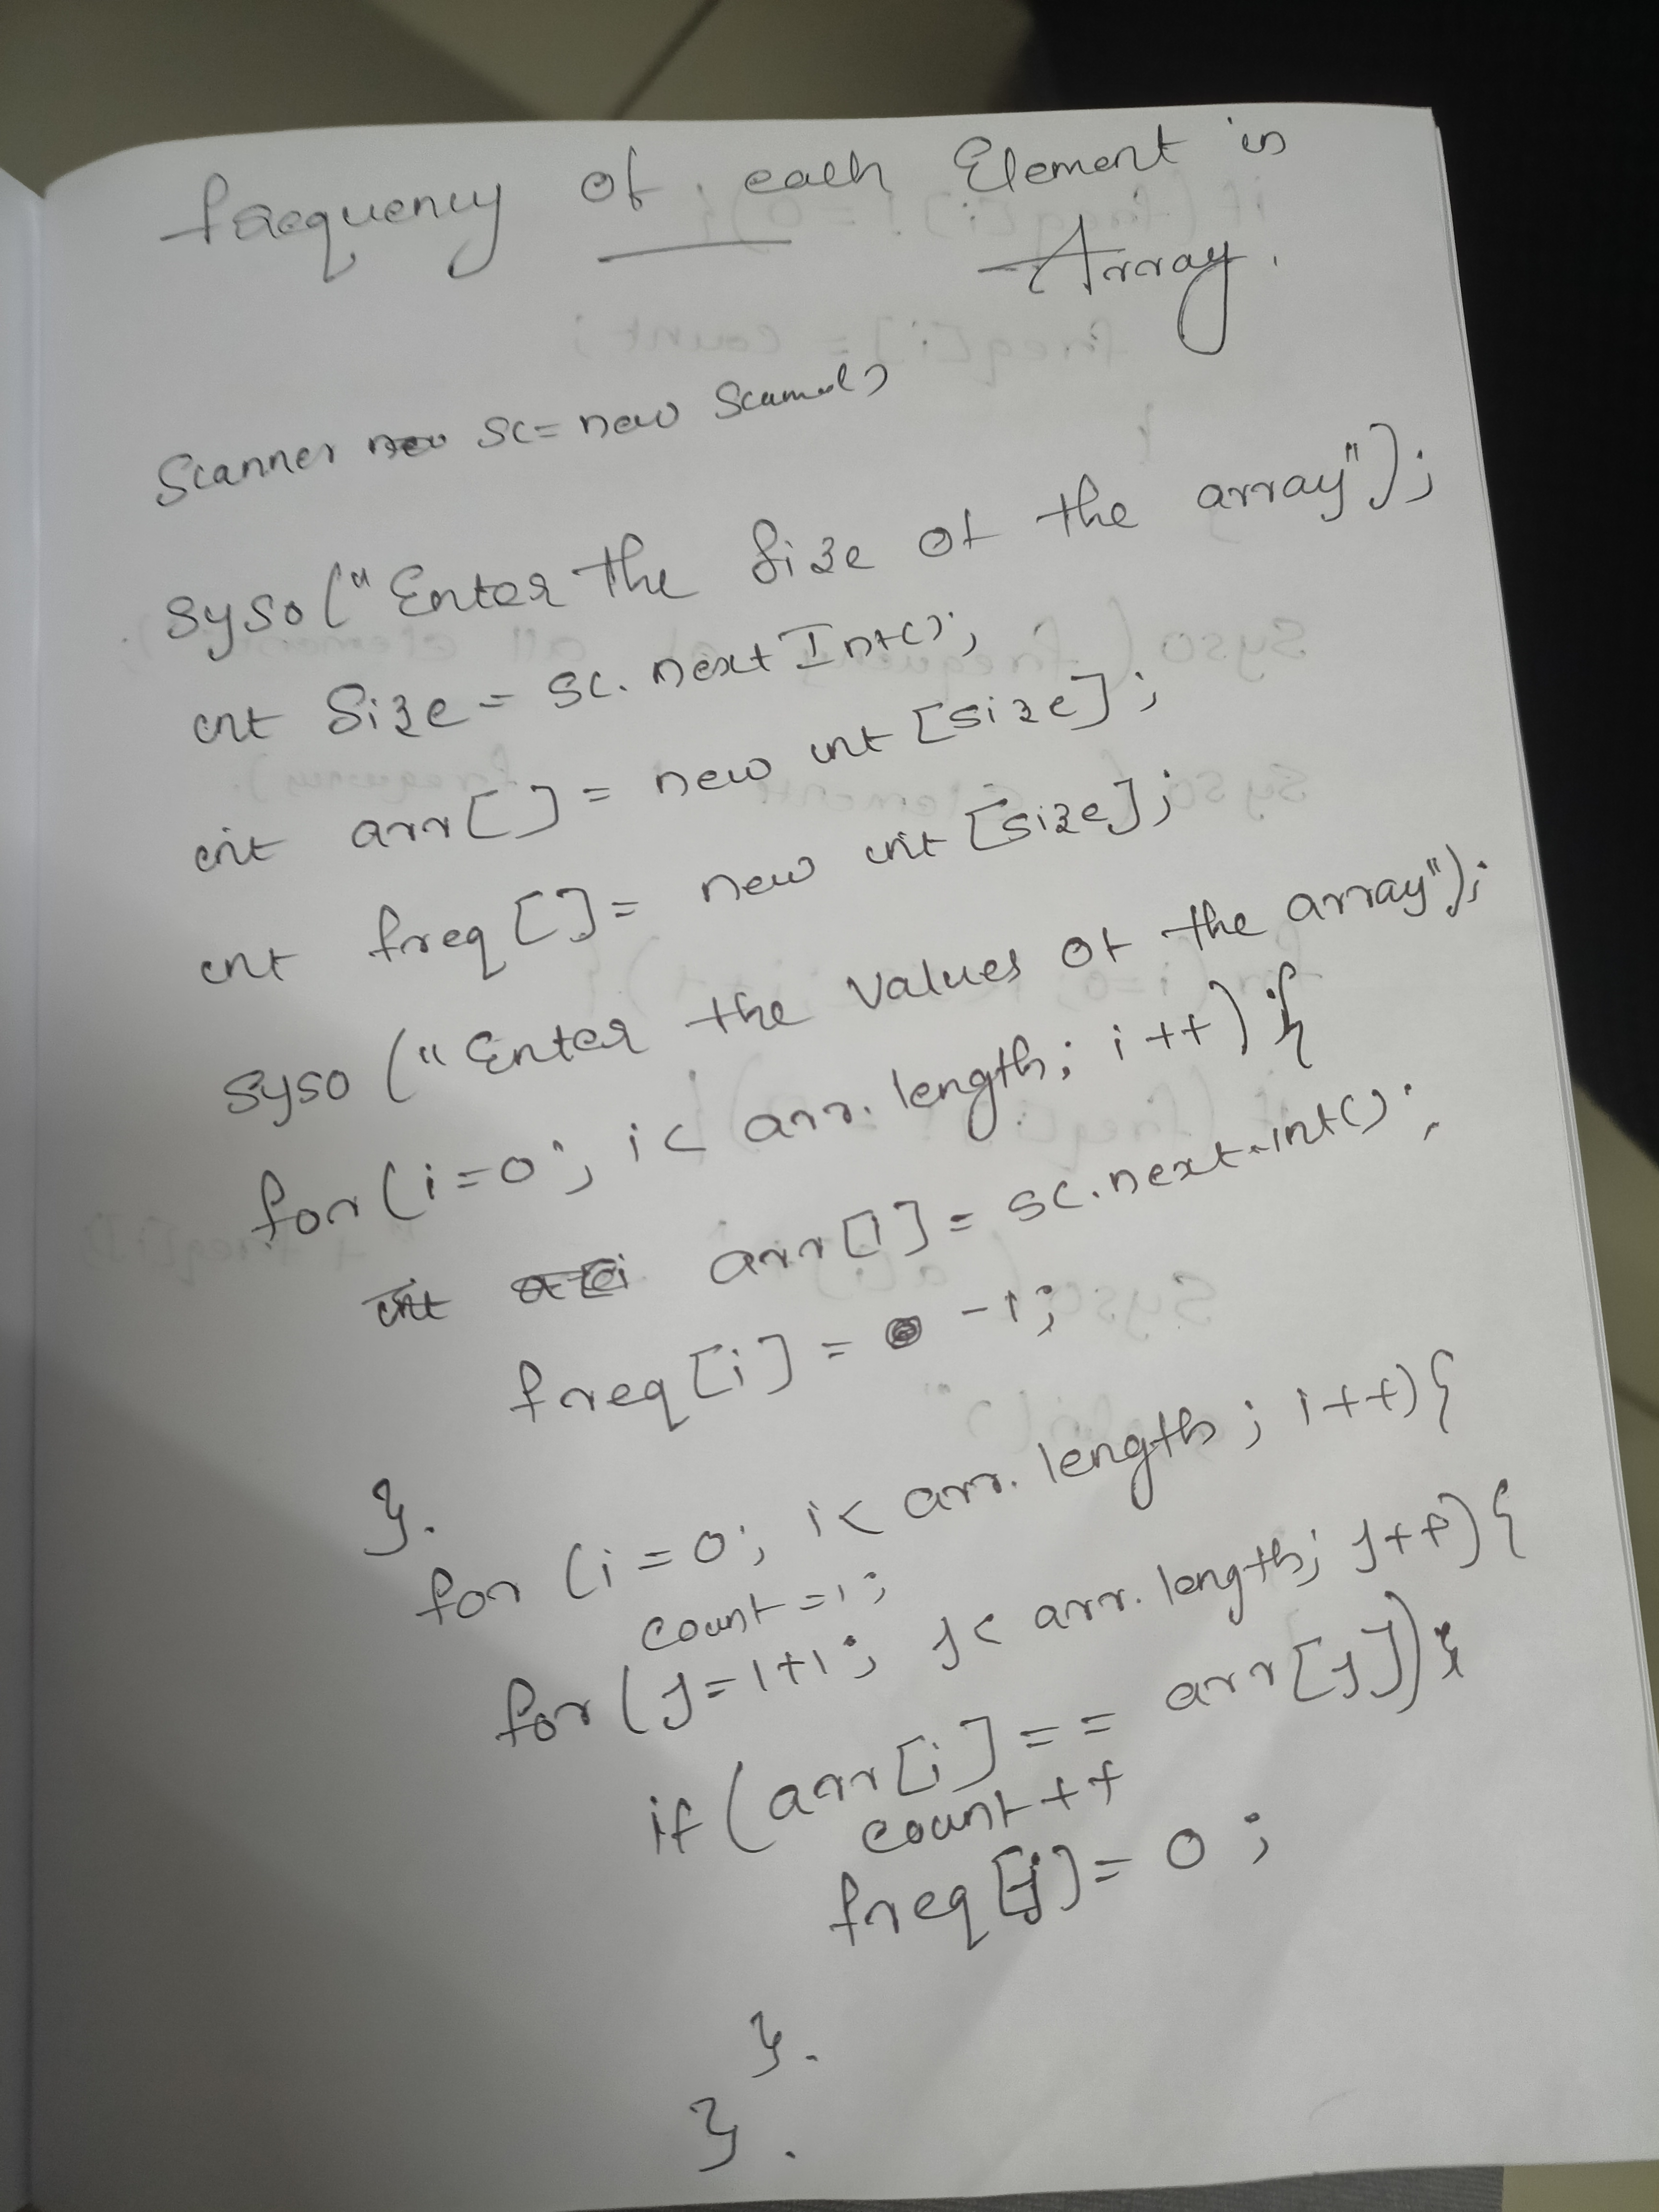 frequency of each Element in
Array.
Scanner sc= new
syso ("Enter the Size of the array");
int Size = sc. next Int();
int arr[] = new int [size];
int freq []= new int [size];
syso ("Enter the values of the array");
for (i=0; i< arr. length; i++) {
arr[i] = sc.next.int();
freq[i] = -1;
}.
for (i=0; i< arr. length; i++){
count=1;
for (j=i+1; j< arr. length; j++){
if (arr[i]== arr[j]){
count++
freq[j]= 0;
}.
}.